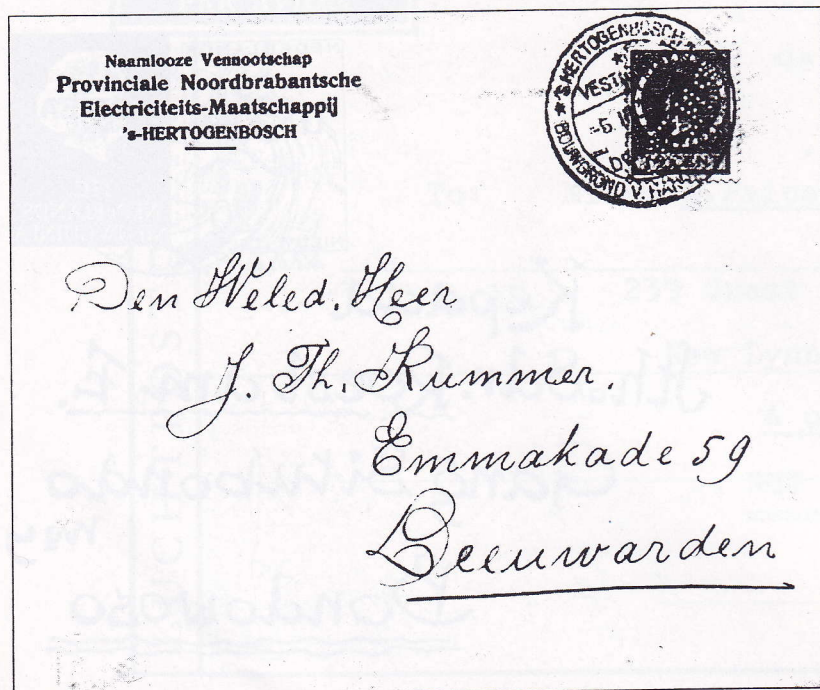 Naamlooze Vennootschap
Provinciale Noordbrabantsche
Electriciteits-Maatschappij
's-HERTOGENBOSCH
'S HERTOGENBOSCH
BOUWGROND V.
Den Weled. Heer
J. Th. Kummer.
Emmakade 59
Leeuwarden